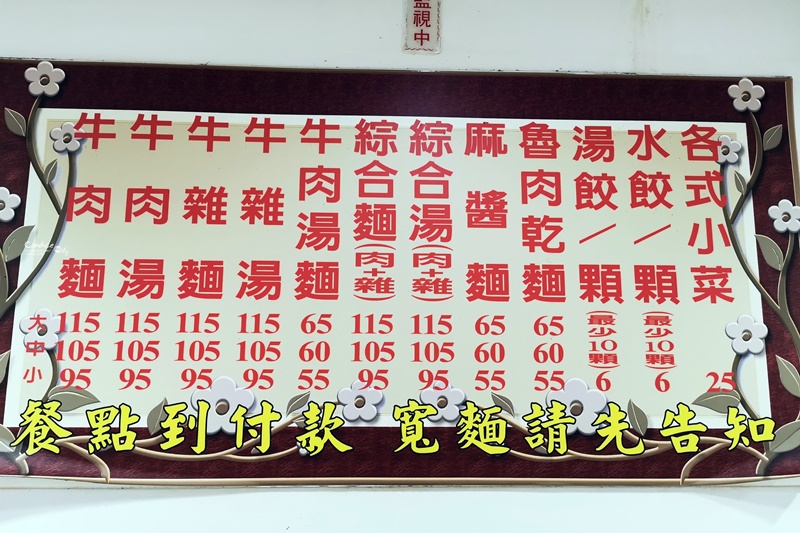 監視中
牛肉麵 大115 中105 小95
牛肉湯 115 105 95
牛雜麵 115 105 95
牛雜湯 115 105 95
牛肉湯麵 65 60 55
綜合麵(肉+雜) 115 105 95
綜合湯(肉+雜) 115 105 95
麻醬麵 65 60 55
魯肉乾麵 65 60 55
湯餃/顆 (最少10顆) 6
水餃/顆 (最少10顆) 6
各式小菜 25
餐點到付款 寬麵請先告知